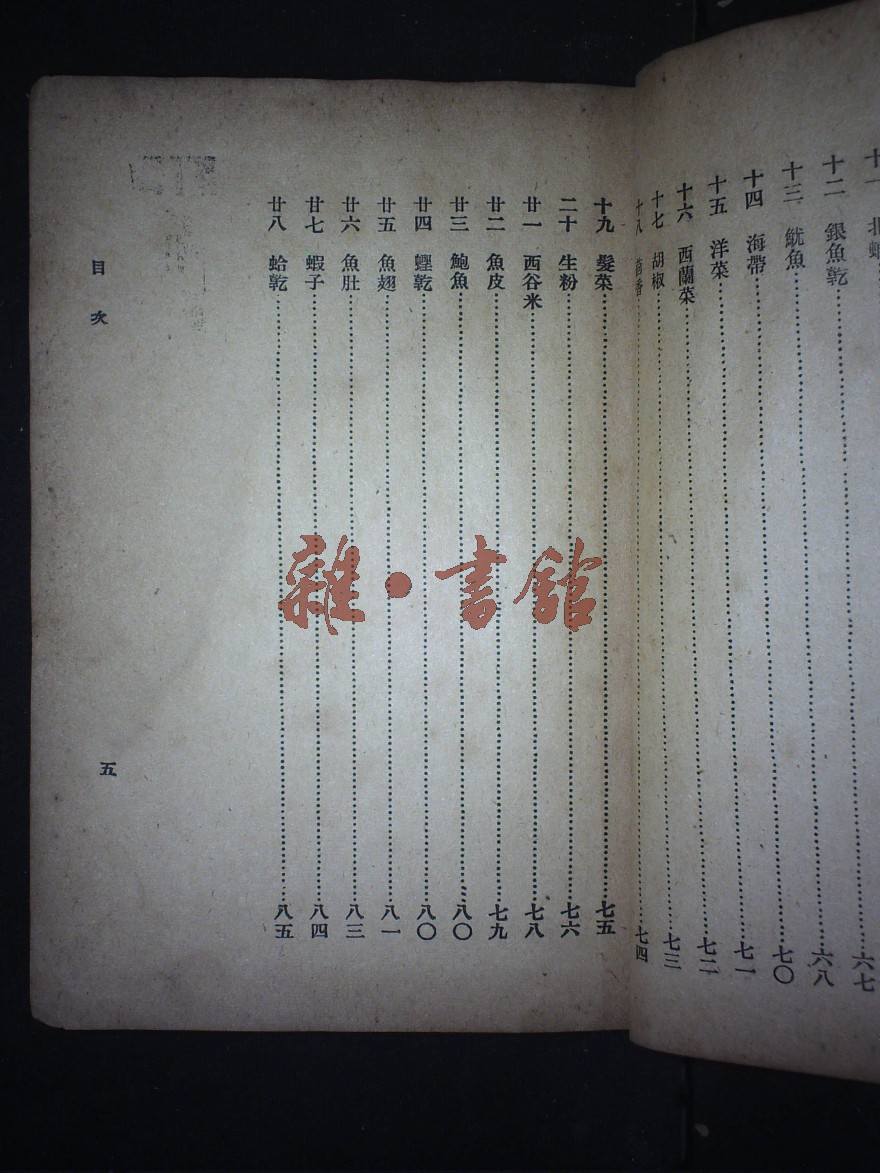 十二　銀魚乾……六八
十三　魷魚……七〇
十四　海帶……七一
十五　洋菜……七二
十六　西蘭菜……七三
十七　胡椒
十八　茴香……七四
十九　髮菜……七五
二十　生粉……七六
廿一　西谷米……七八
廿二　魚皮……七九
廿三　鮑魚……八〇
廿四　蟶乾……八〇
廿五　魚翅……八一
廿六　魚肚……八三
廿七　蝦子……八四
廿八　蛤乾……八五
目次
五
雜・書館